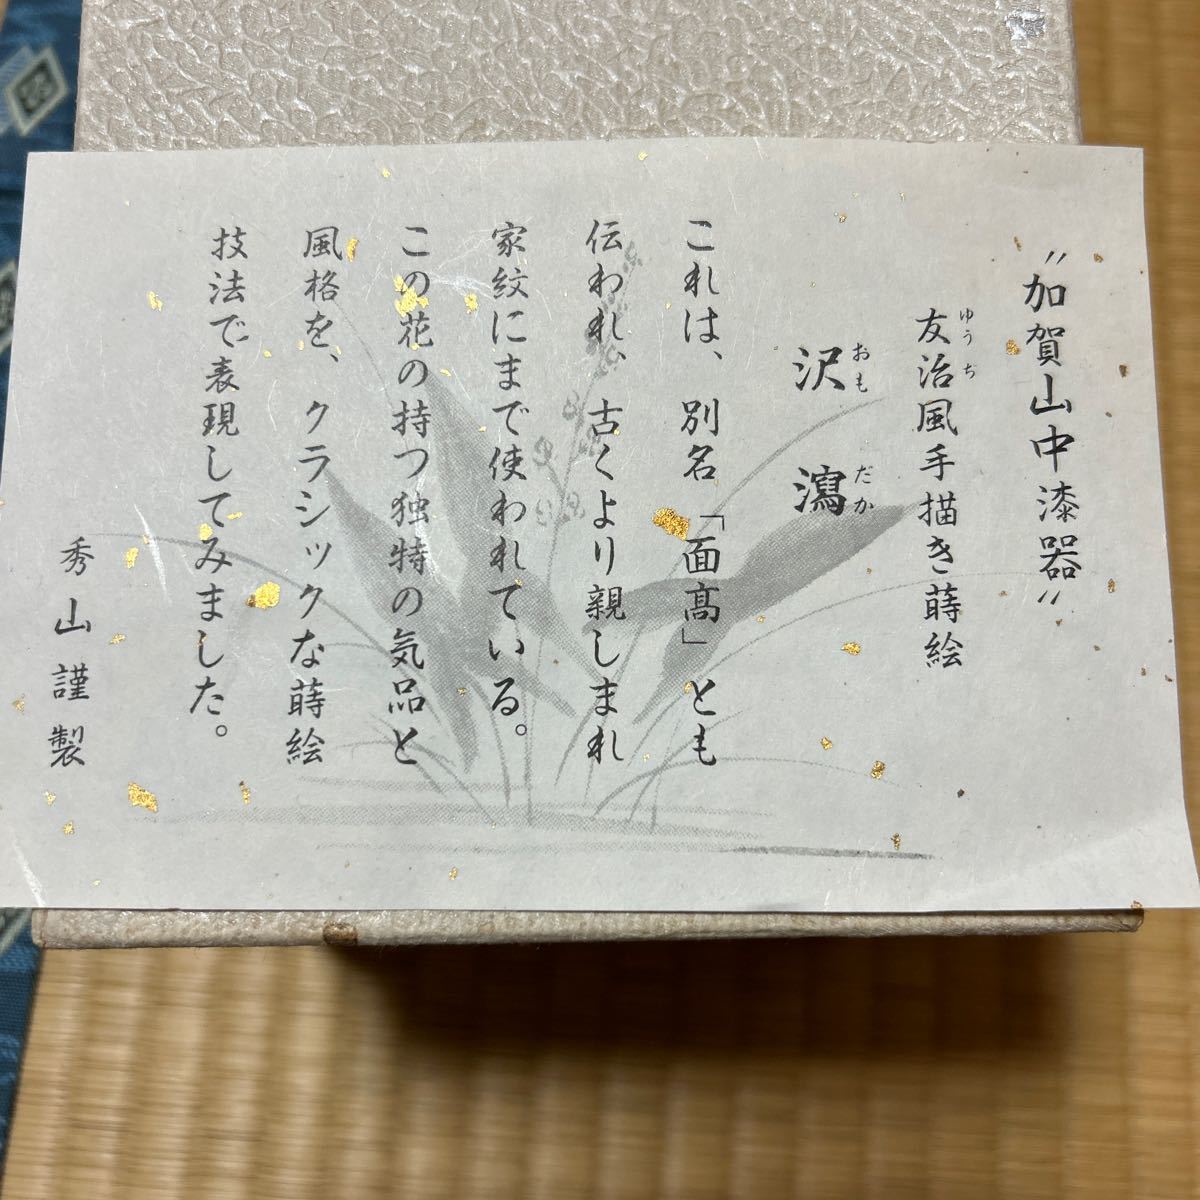 "加賀山中漆器"
友治風手描き蒔絵
ゆうぢ
沢瀉
おもだか
これは、別名「面高」とも
伝われ、古くより親しまれ
家紋にまで使われている。
この花の持つ独特の気品と
風格を、クラシックな蒔絵
技法で表現してみました。
秀山謹製